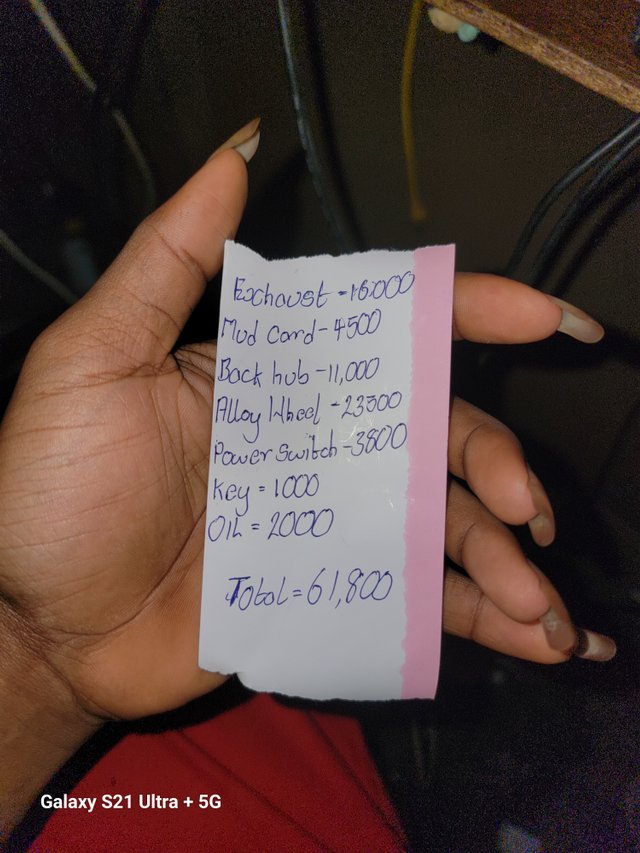 Exchaust - 16.000
Mud Card - 4500
Back hub - 11,000
Alloy Wheel - 23500
Power Switch - 3800
Key = 1000
OIL = 2000
Total = 61,800
Galaxy S21 Ultra + 5G